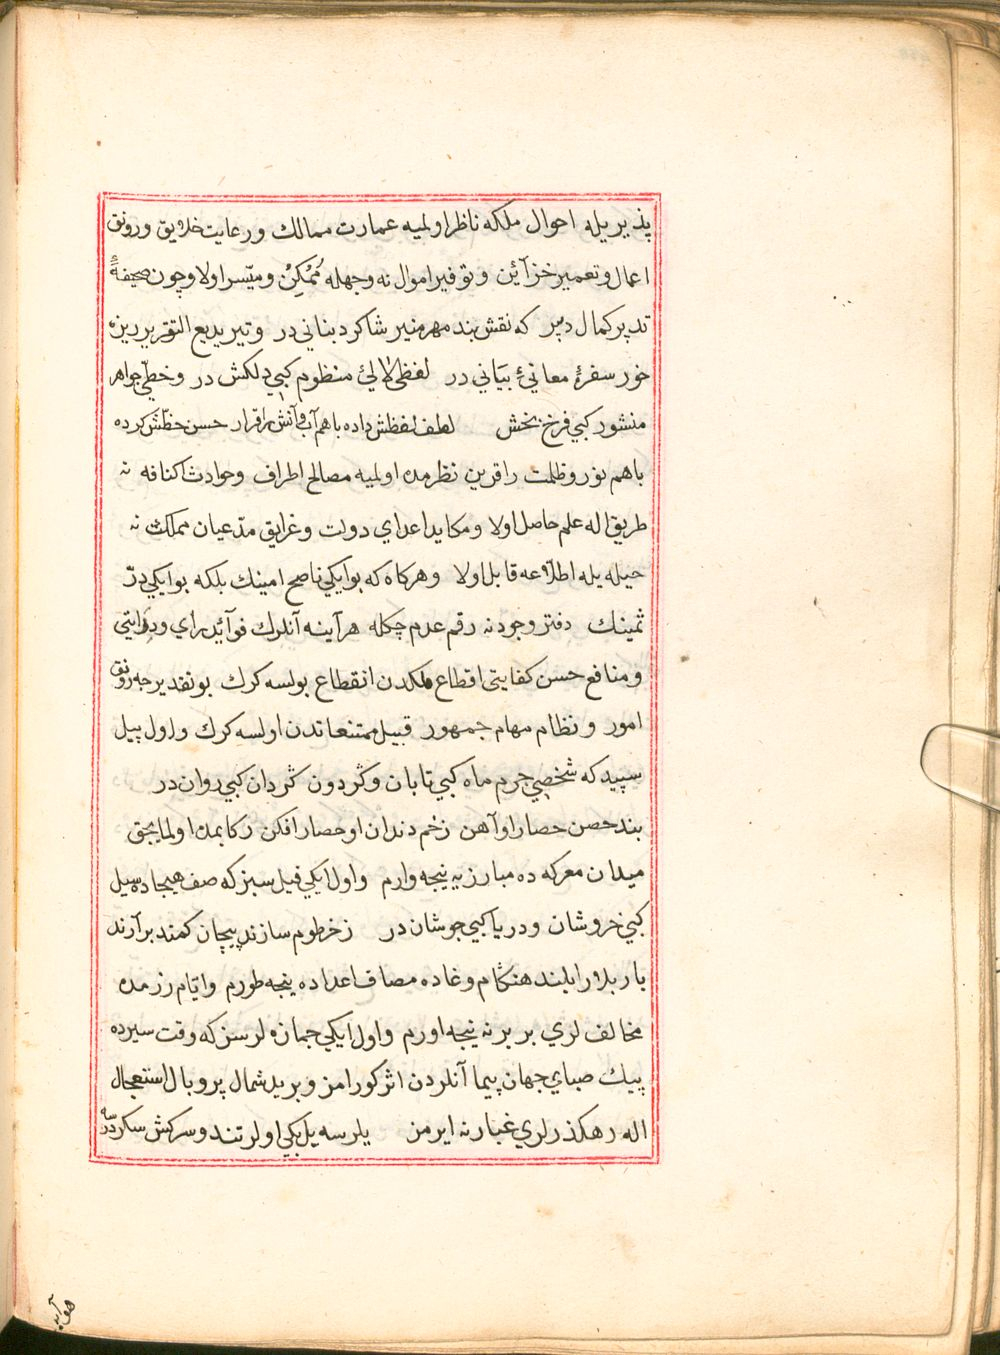 پذير يله احوال ملكه ناظر اولميه عمارت ممالك ورعايت خلايق ورونق
اعمال وتعمير خزآئن وتوفير اموال نه وجهله مُمْكِنْ وميّسر اولا وچون صحيفهٔ
تدبير كمال دبير كه نقش بند مهر منير شاكرد بناني در وتير بديع التقرير ريزه
خور سفرهٔ معانئ بيَاني در لفظى لآلئ منظوم كبي دلكش در وخطّى جواهر
منشور كبي فرخ بخش لطف لفظش داده باهم آب وآتش را قرار حسن خطّش كرده
باهم نور وظلمت را قرين نظرمده اولميه مصالح اطراف وحوادث اكنافه نه
طريق اله علم حاصل اولا ومكايد اعداي دولت وغرايق مدّعيان مملكت نه
حيله يله اطلاعه قابل اولا وهركاه كه بو ايكي ناصح امينك بلكه بو ايكي درّ
ثمينك دفتر وجودنه رقم عدم چكله هرآينه آنلرك فوآئد راي ودرايتي
ومنافع حسن كفايتى اقطاع ملكدن انقطاع بولسه كرك بو تقديرجه رونق
امور ونظام مهام جمهور قبيل ممتنعاتدن اولسه كرك واول پيل
سپيد كه شخصي جرم ماه كبي تابان وكردون كردان كبي روان در
بند حصن حصار او آهن زخم دندان او حصار افكن ركابمده اولمايجق
ميدان معركه ده مبارزيه نيجه وارم واول ايكي فيل سبز كه صف هيجاده سيل
كبي خروشان ودريا كبي جوشان در زخرطوم سازند پيچان كمند برآرند
بار بلا را بلند هنكام وغاده مصاف اعداده نيجه طورم وايّام رزمده
مخالف لري بر برنه نيجه اورم واول ايكي جمازه لرسز كه وقت سيرده
پيك صباي جهان پيما آنلردن اثر كورامز وبريد شمال پروبال استعجال
اله رهكذرلري غبارنه ايرمز يلرسه يل بكي اولر تند وسركش سكردرسه